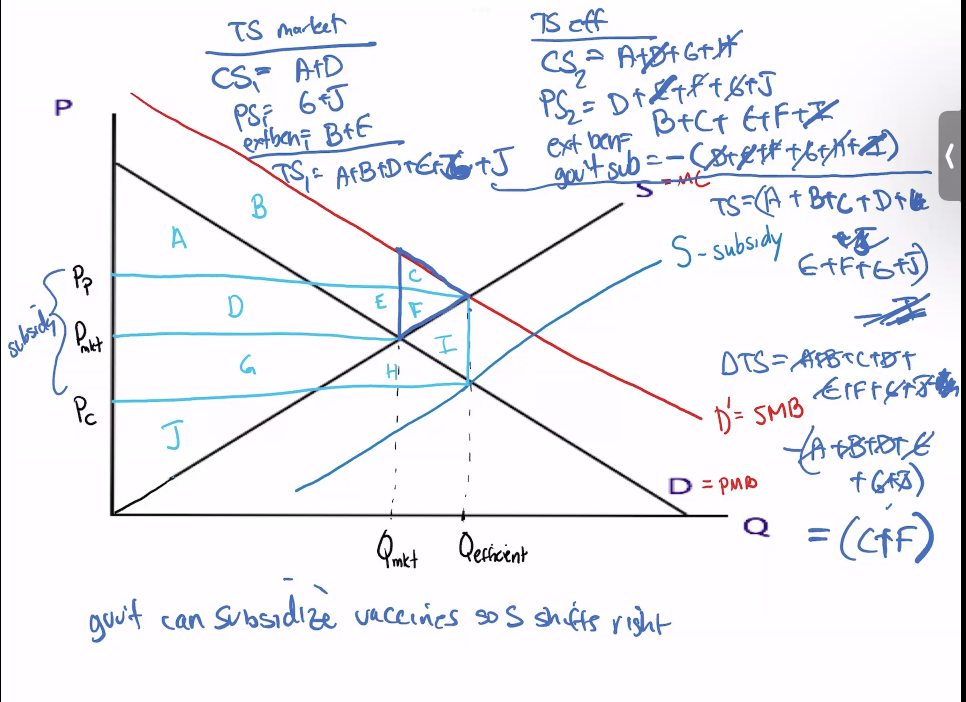 TS market
CS₁= A+D
PS₁= G+J
ext ben₁= B+E
TS₁= A+B+D+E+G+J
TS eff
CS₂= A+D+G+H
PS₂= D+E+F+G+J
ext ben= B+C+E+F+I
gov't sub = -(D+E+F+G+H+I)
TS=(A+B+C+D+
E+F+G+J)
DTS= A+B+C+D+
E+F+G+J
-(A+B+D+E
+G+J)
= (C+F)
P
S = MC
S-subsidy
B
A
C
Pp
E
F
D
subsidy
Pmkt
I
G
H
Pc
J
D'= SMB
D = PMB
Q
Qmkt
Qefficient
gov't can subsidize vaccines so S shifts right